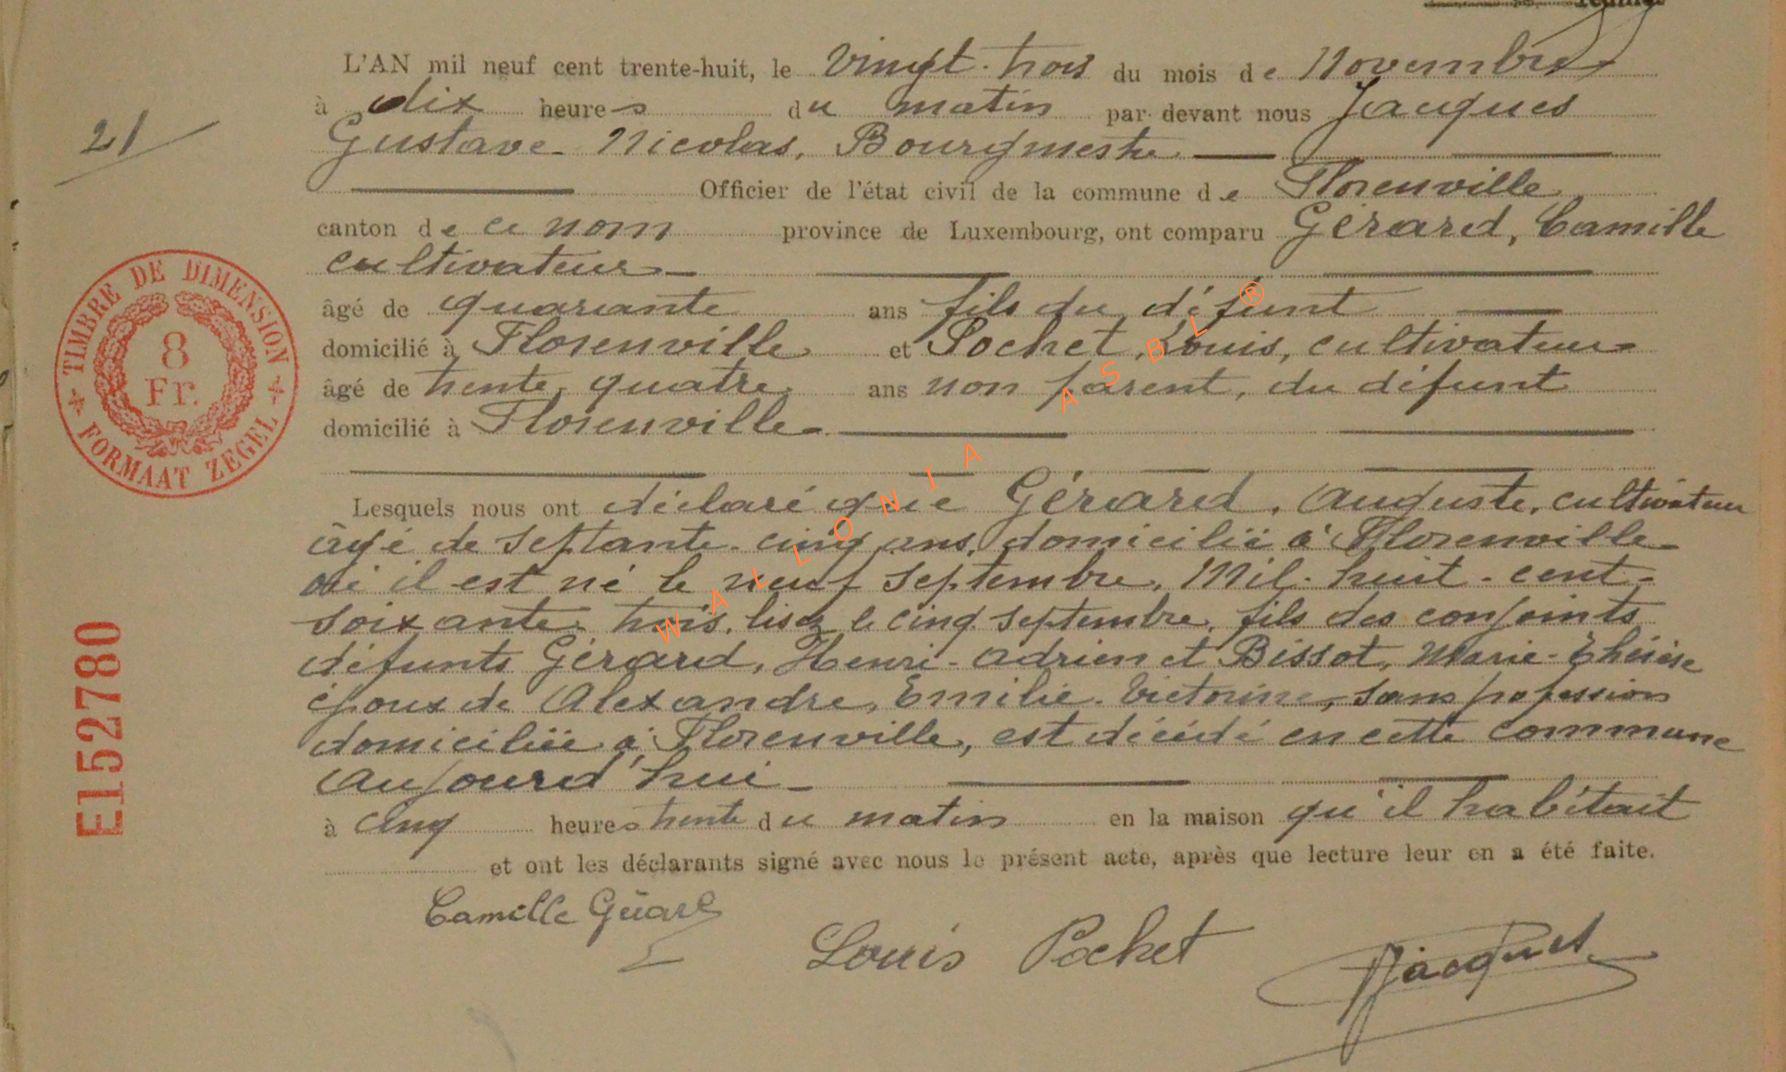 L'AN mil neuf cent trente-huit, le vingt-trois du mois de Novembre
21
à dix heures du matin par devant nous Jacques
Gustave Nicolas, Bourgmestre
Officier de l'état civil de la commune de Florenville
canton de ce nom province de Luxembourg, ont comparu Gérard, Camille
cultivateur
âgé de quarante ans fils du défunt
domicilié à Florenville et Pochet, Louis, cultivateur
âgé de trente quatre ans non parent, du défunt
domicilié à Florenville
TIMBRE DE DIMENSION
8
Fr.
FORMAAT ZEGEL
Lesquels nous ont déclaré que Gérard, Auguste, cultivateur
âgé de septante-cinq ans, domicilié à Florenville
où il est né le neuf septembre, mil-huit-cent-
soixante-trois, lisez le cinq septembre, fils des conjoints
défunts Gérard, Henri-Adrien et Bissot, Marie-Thérèse
époux de Alexandre, Emilie-Victorine, sans profession
domiciliée à Florenville, est décédé en cette commune
aujourd'hui
à cinq heures trente du matin en la maison qu'il habitait
et ont les déclarants signé avec nous le présent acte, après que lecture leur en a été faite.
Camille Gérard
Louis Pochet
Jacques
E152780
WALLONIA ASBL ®